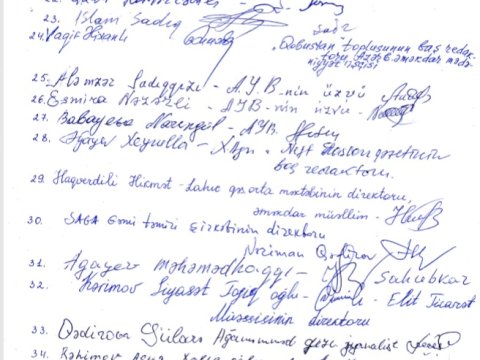 23. İslam Sadıq
24. Vaqif Hisanlı
şair
"Qobustan" toplusunun baş redak-
toru, Azərb. əməkdar mədə-
niyyət işçisi
25. Ələmzər Sadıqqızı - A.Y.B.-nin üzvü
26. Esmira - AYB-nin üzvü -
27. Babayeva Narıngül - AYB.
28. Əyayev Xeyrulla - "Neft
baş redaktoru.
29. Haqverdili Hikmət - orta məktəbinin direktoru,
əməkdar müəllim -
30. SAGA Gəmi təmiri Şirkətinin direktoru
Nəriman Qədirov
31. Agayev Məhəmədhəqqi - Sahibkar
32. Kərimov Siyasət Tofiq oğlu - Elit Ticarət
Müəssisənin direktoru
33. Qədirova Gülarə Ağaməmməd qızı jurnalist
34. Rəhimov